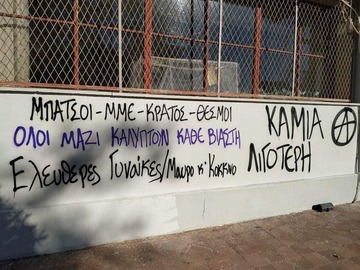 ΜΠΑΤΣΟΙ-ΜΜΕ-ΚΡΑΤΟΣ-ΘΕΣΜΟΙ
ΟΛΟΙ ΜΑΖΙ ΚΑΛΥΠΤΟΥΝ ΚΑΘΕ ΒΙΑΣΤΗ
Ελευθερες Γυναίκες/Μαυρο κ' Κοκκινο
ΚΑΜΙΑ
ΛΙΓΟΤΕΡΗ